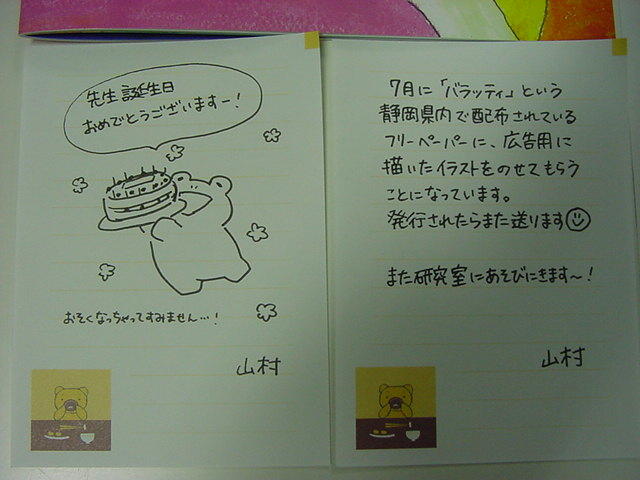 先生誕生日
おめでとうございますー!
おそくなっちゃってすみません…!
山村
7月に「バラッティ」という
静岡県内で配布されている
フリーペーパーに、広告用に
描いたイラストをのせてもらう
ことになっています。
発行されたらまた送ります
また研究室にあそびにきます〜!
山村